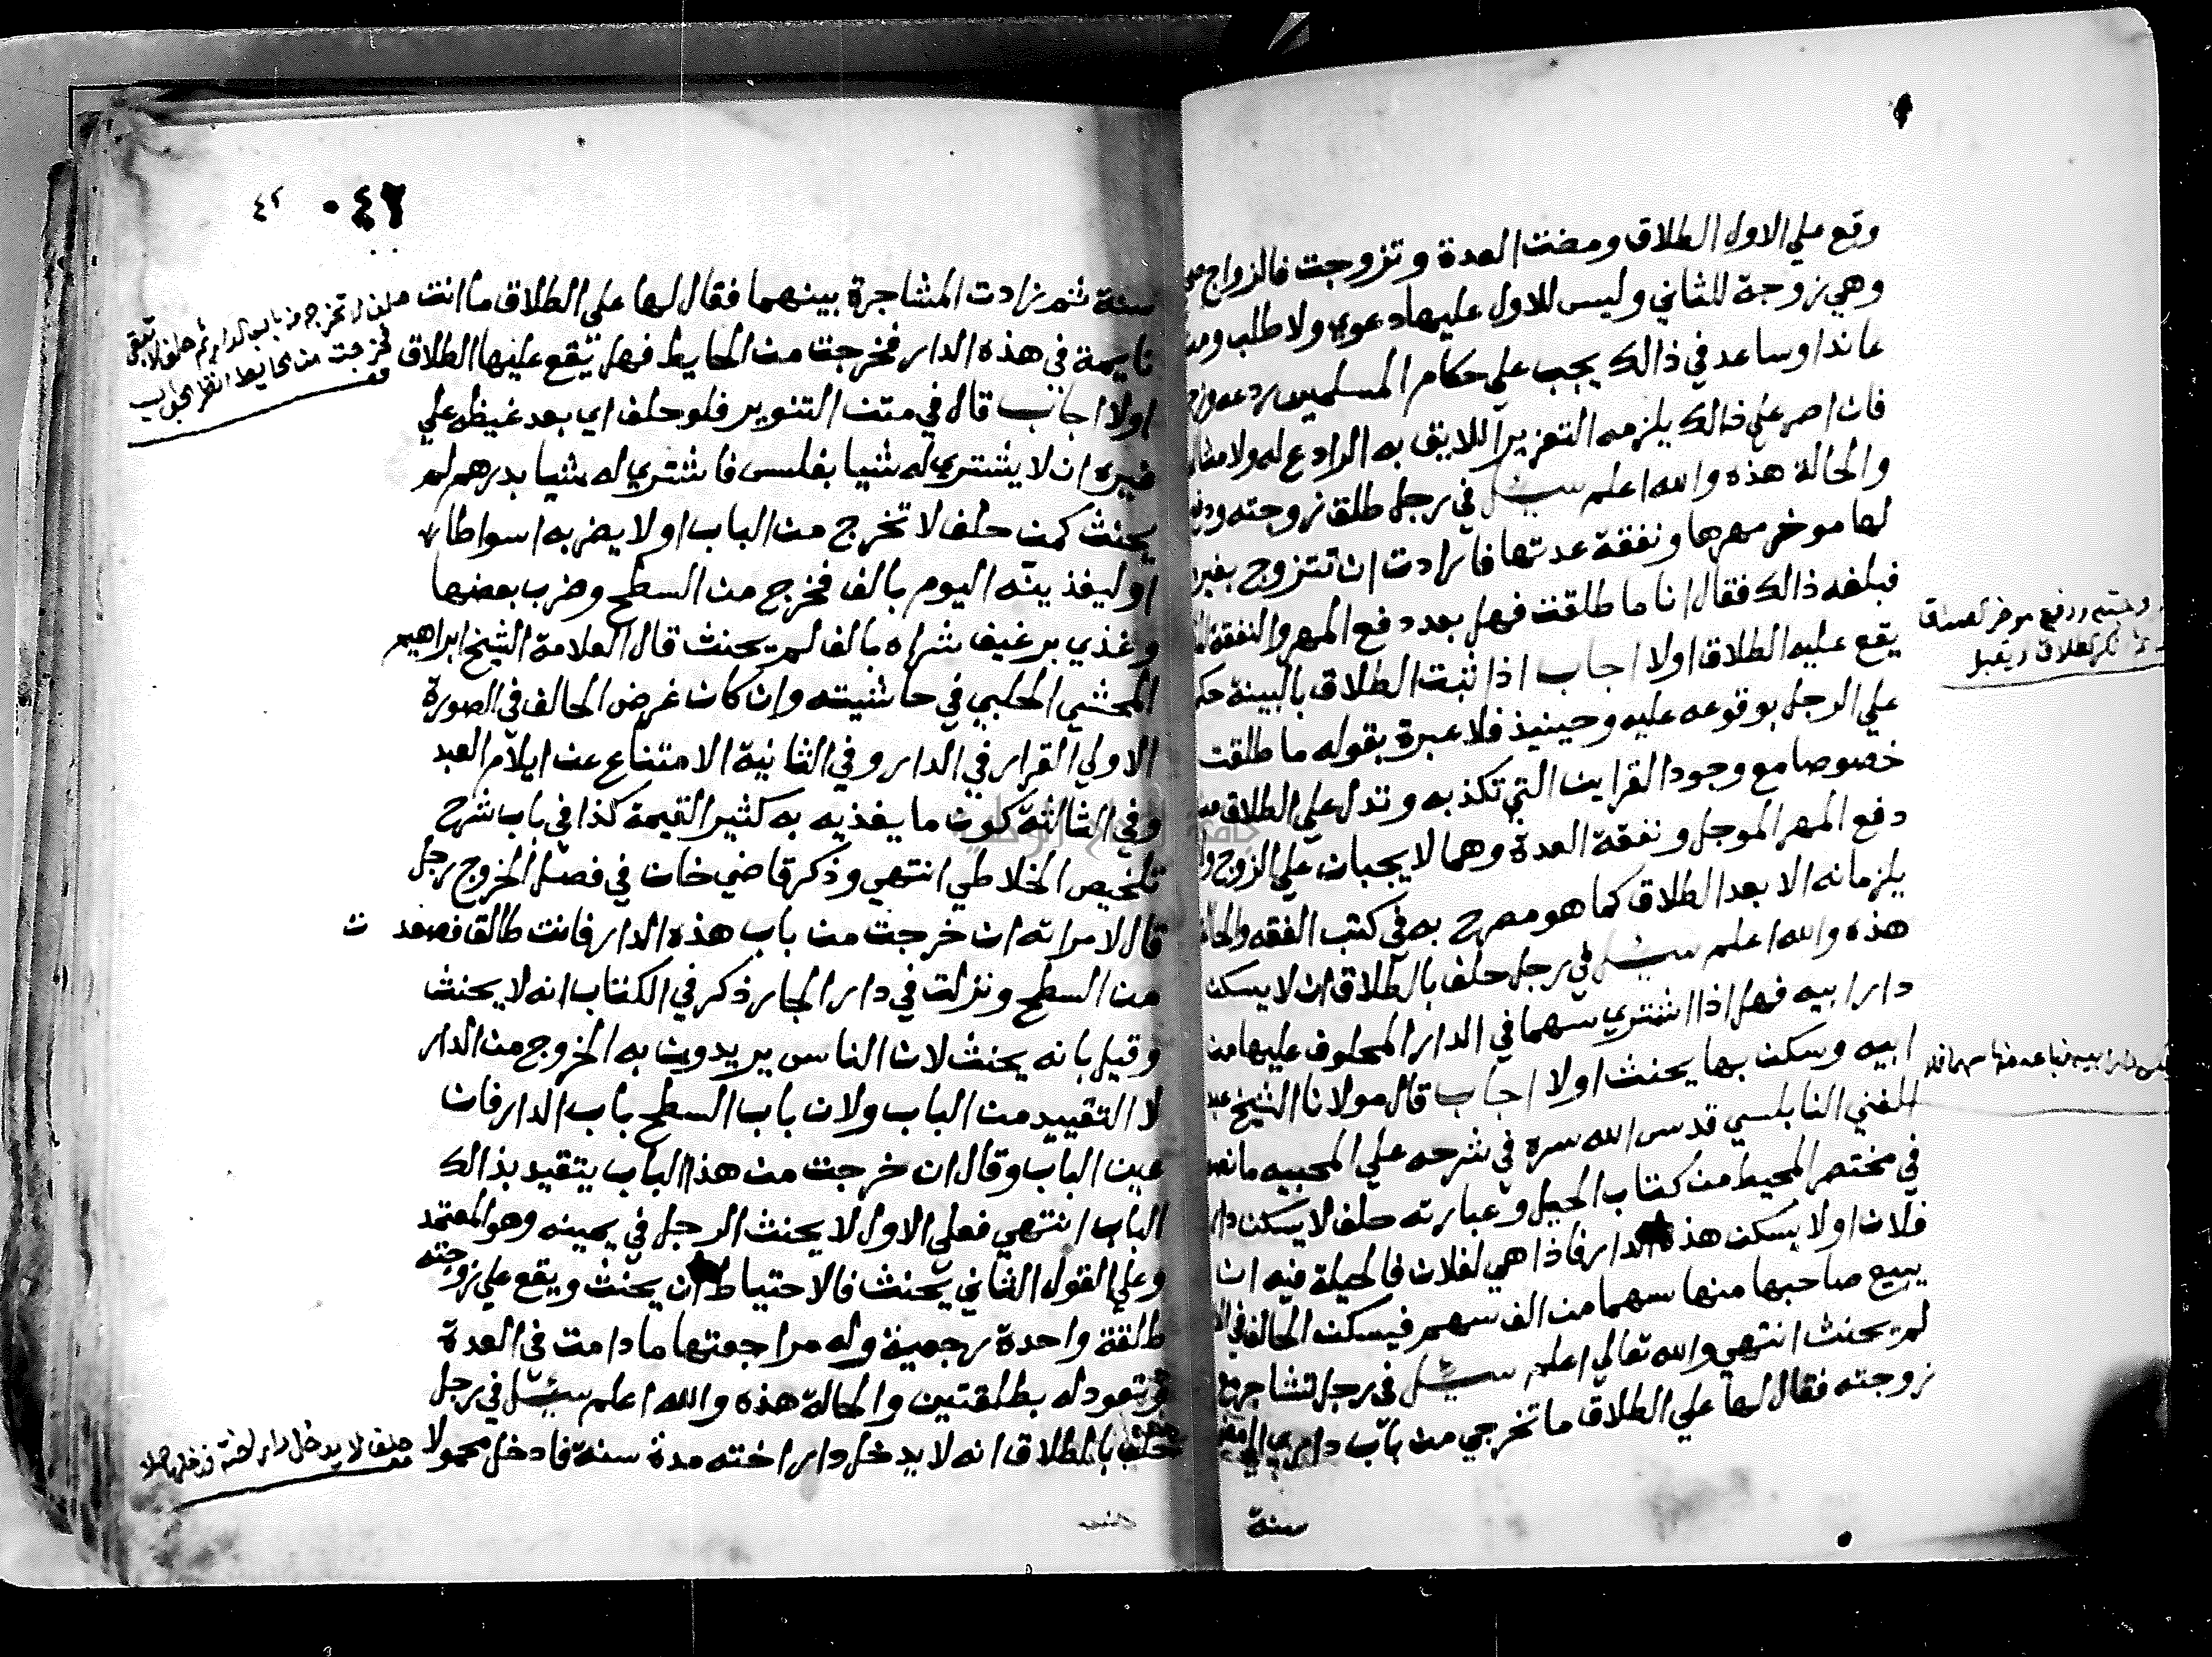 وقع علي الاول الطلاق ومضت العدة وتزوجت فالزواج
وهي زوجة للثاني وليس للاول عليها دعوي ولا طلب ومن
عاند او ساعد في ذالك يجب علي حكام المسلمين ردعه
فان اصر علي ذالك يلزمه التعزير اللايق به الرادع له ولامثاله
والحالة هذه والله اعلم سئل في رجل طلق زوجته ودفع
لها موخر مهرها ونفقة عدتها فارادت ان تتزوج بغيره
فبلغه ذالك فقال انا ما طلقت فهل بعد دفع المهر والنفقة
يقع عليه الطلاق اولا اجاب اذا ثبت الطلاق بالبينة حكم
علي الرجل بوقوعه عليه وحينيذ فلا عبرة بقوله ما طلقت
خصوصا مع وجود القراين التي تكذبه وتدل علي الطلاق من
دفع المهر الموجل ونفقة العدة وهما لا يجبان علي الزوج ولا
يلزمانه الا بعد الطلاق كما هو مصرح به في كتب الفقه والحالة
هذه والله اعلم سئل في رجل حلف بالطلاق ان لا يسكن
دار ابيه فهل اذا اشتري سهما في الدار المحلوف عليها من
ابيه وسكن بها يحنث اولا اجاب قال مولانا الشيخ عبد
الغني النابلسي قدس الله سره في شرحه علي المحبيه ما نصه
في مختصر المحيط من كتاب الحيل وعبارته حلف لا يسكن دار
فلان اولا يسكن هذه الدار فاذا هي لفلان فالحيلة فيه ان
يبيع صاحبها منها سهما من الف سهم فيسكن الحالف في
لم يحنث انتهي والله تعالي اعلم سئل في رجل تشاجر مع
زوجته فقال لها علي الطلاق ما تخرجي من باب داري
سنة
ودفع موخر الصداق
الطلاق
٠٤٦
٤٢
سنة ثم زادت المشاجرة بينهما فقال لها علي الطلاق ما انت
نايمة في هذه الدار فخرجت من الحايط فهل يقع عليها الطلاق
اولا اجاب قال في متن التنوير فلو حلف اي بعد غيظه علي
غيره ان لا يشتري له شيا بفلس فاشتري له شيا بدرهم لم
يحنث كمن حلف لا تخرج من الباب اولا يضربه اسواطا
او ليغذينه اليوم بالف فخرج من السطح وضرب بعضها
وغذي برغيف شراه بالف لم يحنث قال العلامة الشيخ ابراهيم
المحشي الحلبي في حاشيته وان كان غرض الحالف في الصورة
الاولي القرار في الدار وفي الثانية الامتناع عن ايلام العبد
وفي الثالثة كون ما يغذيه به كثير القيمة كذا في باب شرح
تلخيص الخلاطي انتهي وذكر قاضي خان في فصل الخروج رجل
قال لامراته ان خرجت من باب هذه الدار فانت طالق فصعدت
من السطح ونزلت في دار الجار ذكر في الكتاب انه لا يحنث
وقيل بانه يحنث لان الناس يريدون به الخروج من الدار
لا التقييد من الباب ولان باب السطح باب الدار فان
عين الباب وقال ان خرجت من هذا الباب يتقيد بذالك
الباب انتهي فعلي الاول لا يحنث الرجل في يمينه وهو المعتمد
وعلي القول الثاني يحنث فالاحتياط ان يحنث ويقع علي زوجته
طلقة واحدة رجعية وله مراجعتها ما دامت في العدة
وتعود له بطلقتين والحالة هذه والله اعلم سئل في رجل
حلف بالطلاق انه لا يدخل دار اخته مدة سنة فادخل محمولا
حلف لا تخرج من باب الدار ثم حلف لا تبقي
فخرجت من الحايط انظر الجواب
حلف لا يدخل دار اخته